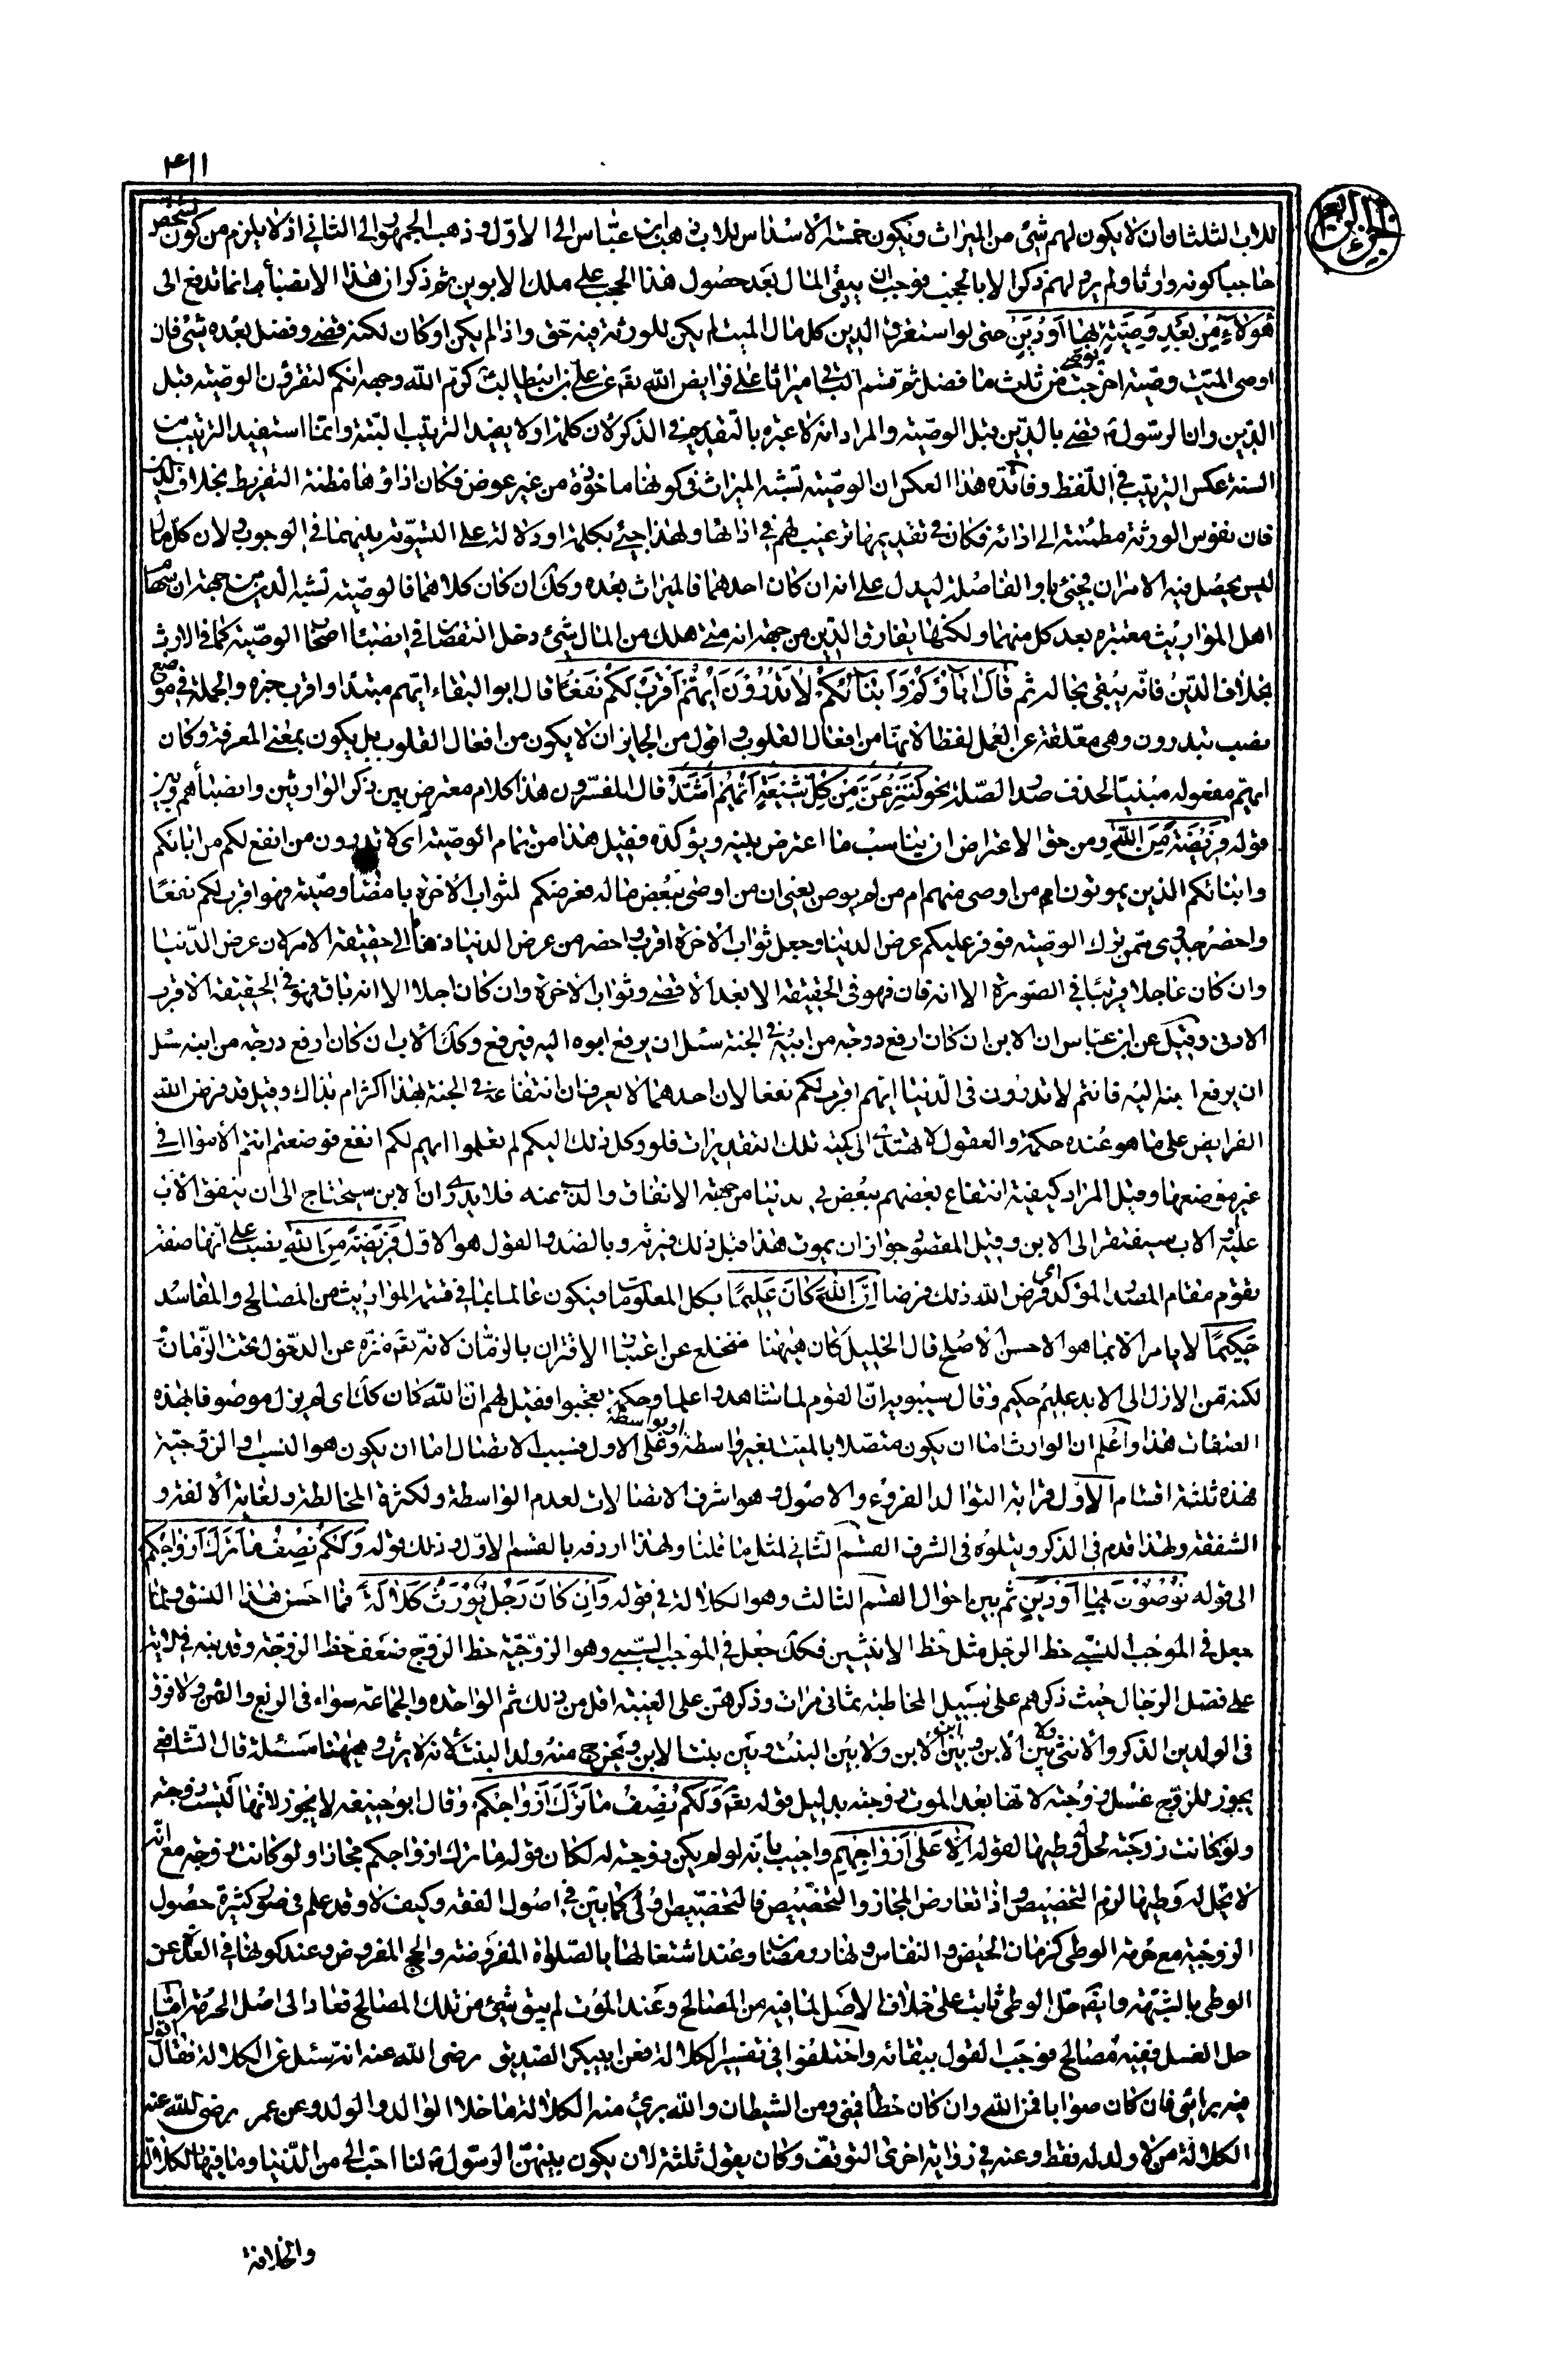 ٤١١
الجزء الرابع
للاب الثلثان وان لا يكون لهم شئ من الميراث ويكون خمسة الاسداس للاب فذهب ابن عباس الى الاول وذهب الجمهور الى الثاني اذ لا يلزم من كون الشخص
حاجبا كونه وارثا ولم يرد لهم ذكر الا بالحجب فوجب ان يبقى المال بعد حصول هذا الحجب على ملك الابوين ثم ذكر ان هذه الانصباء انما تدفع الى
هؤلاء من بعد وصية يوصى بها او دين حتى لو استغرق الدين كل مال الميت لم يكن للورثة فيه حق واذا لم يكن او كان لكنه قضى وفضل بعده شئ فان
اوصى الميت وصية اخرجت من ثلث ما فضل ثم قسم الباقي ميراثا على فرايض الله تع عن علي بن ابيطالب كرم الله وجهه انكم لتقرؤن الوصية قبل
الدين وان الرسول ص قضى بالدين قبل الوصية والمراد انه لا عبرة بالتقديم في الذكر لان كلمة او لا يفيد الترتيب البتة وانما استفيد الترتيب من
السنة عكس الترتيب في اللفظ وفائدة هذا العكس ان الوصية تشبه الميراث في كونها ماخوذة من غير عوض فكان اداؤها مظنة التفريط بخلاف الدين
فان نفوس الورثة مطمئنة الى ادائه فكان في تقديمها ترغيب لهم في ادائها ولهذا جئ بكلمة او دلالة على التسوية بينهما في الوجوب ولان كل مال
ليس يحصل فيه الامران فجئ باو الفاصلة ليدل على انه ان كان احدهما فالميراث بعده وكك ان كان كلاهما فالوصية تشبه الدين من جهة ان سهام
اهل المواريث معتبرة بعد كل منهما ولكنها يفارق الدين من جهة انه متى هلك من المال شئ دخل النقصان في انصباء اصحاب الوصية كما في الارث
بخلاف الدين فانه يبقى بحاله ثم قال اباؤكم وابنائكم لا تدرون ايهم اقرب لكم نفعا قال ابو البقاء ايهم مبتدا واقرب خبره والجملة في موضع
نصب بتدرون وهى معلقة عن العمل لفظا لانها من افعال القلوب واقول من الجايز ان لا يكون من افعال القلوب بل يكون بمعنى المعرفة وكان
ايهم مفعوله مبنيا لحذف صدر الصلة نحو لننزعن من كل شيعة ايهم اشد قال المفسرون هذا كلام معترض بين ذكر الوارثين وانصبائهم وبين
قوله فريضة من الله ومن حق الاعتراض ان يناسب ما اعترض بينه ويؤكده فقيل هذا من تمام الوصية اى لا تدرون من انفع لكم من ابائكم
وابنائكم الذين يموتون امن اوصى منهم ام من لم يوص يعنى ان من اوصى ببعض ماله فعرضكم لثواب الاخرة بامضاء وصيته فهو اقرب لكم نفعا
واحضر جدوى ممن ترك الوصية فوفر عليكم عرض الدنيا وجعل ثواب الاخرة اقرب واحضر من عرض الدنيا ذهابا الى حقيقة الامر لان عرض الدنيا
وان كان عاجلا قريبا في الصورة الا انه فان فهو في الحقيقة الابعد الاقصى وثواب الاخرة وان كان اجلا الا انه باق فهو في الحقيقة الاقرب
الادنى وقيل عن ابن عباس ان الابن ان كان ارفع درجة من ابيه في الجنة سئل ان يرفع ابوه اليه فيرفع وكك الاب ان كان ارفع درجة من ابنه سئل
ان يرفع ابنه اليه فانتم لا تدرون في الدنيا ايهم اقرب لكم نفعا لان احدهما لا يعرف ان انتفاعه في الجنة بهذا اكثر ام بذاك وقيل قد فرض الله
الفرايض على ما هو عنده حكمة والعقول لا تهتدى الى كمية تلك التقديرات فلو وكل ذلك اليكم لم تعلموا ايهم لكم انفع فوضعتم انتم الاموال في
غير موضعها وقيل المراد كيفية انتفاع بعضهم ببعض في الدنيا من جهة الانفاق والذب عنه فلا يدرى ان الابن سيحتاج الى ان ينفق الاب
عليه او الاب سيفتقر الى الابن وقيل المقصود جواز ان يموت هذا قبل ذلك فيرثه وبالضد والقول هو الاول فريضة من الله نصب على انها صفة
تقوم مقام المصدر المؤكد اى فرض الله ذلك فرضا ان الله كان عليما بكل المعلومات فيكون عالما بما في قسمة المواريث من المصالح والمفاسد
حكيما لا يامر الا بما هو الاحسن الاصلح قال الخليل كان ههنا منخلع عن اعتبار الاقتران بالزمان لانه تع منزه عن الدخول تحت الزمان
لكنه من الازل الى الابد عليم حكيم وقال سيبويه ان القوم لما شاهدوا علما وحكمة تعجبوا فقيل لهم ان الله كان كك اى لم يزل موصوفا بهذه
الصفات هذا واعلم ان الوارث اما ان يكون متصلا بالميت بغير واسطة او بواسطة وعلى الاول فسبب الاتصال اما ان يكون هو النسب او الزوجية
فهذه ثلثة اقسام الاول قرابة التوالد الفروع والاصول وهو اشرف الاتصالات لعدم الواسطة ولكثرة المخالطة ولغاية الالفة و
الشفقة ولهذا قدم في الذكر ويتلوه في الشرف القسم الثاني لمثل ما قلنا ولهذا اردفه بالقسم الاول وذلك قوله ولكم نصف ما ترك ازواجكم
الى قوله توصون بها او دين ثم بين احوال القسم الثالث وهو الكلالة في قوله وان كان رجل يورث كلالة فما احسن هذا النسق ولما
جعل في الموجب النسبى حظ الرجل مثل حظ الانثيين فكك جعل في الموجب السببى وهو الزوجية حظ الزوج ضعف حظ الزوجة وقد نبه في الاية
على فضل الرجال حيث ذكرهم على سبيل المخاطبة ثمانى مرات وذكرهن على الغيبة اقل من ذلك ثم الواحدة والجماعة سواء في الربع والثمن ولا فرق
في الولد بين الذكر والانثى ولا بين الابن وبين ابن الابن ولا بين البنت وبين بنت الابن ويخرج منه ولد البنت لانه لا يرث وههنا مسئلة قال الشافعي
يجوز للزوج غسل زوجته لانها بعد الموت زوجته بدليل قوله تع ولكم نصف ما ترك ازواجكم وقال ابو حنيفه لا يجوز لانها ليست زوجته
ولو كانت زوجته لحل وطيها لقوله الا على ازواجهم واجيب بانه لو لم يكن زوجته له لكان قوله ما ترك ازواجكم مجازا ولو كانت زوجته مع انه
لا يحل له وطيها لزم التخصيص واذا تعارض المجاز والتخصيص فالتخصيص اولى كما بين في اصول الفقه وكيف لا وقد علم في صور كثيرة حصول
الزوجية مع حرمة الوطى كزمان الحيض والنفاس ونهار رمضان وعند اشتغالها بالصلوة المفروضة والحج المفروض وعند كونها في العدة عن
الوطى بالشبهة وايضا حل الوطى ثابت على خلاف الاصل لما فيه من المصالح وعند الموت لم يبق شئ من تلك المصالح فعاد الى اصل الحرمة اما
حل الغسل ففيه مصالح فوجب القول ببقائه واختلفوا في تفسير الكلالة فعن ابيبكر الصديق رضى الله عنه انه سئل عن الكلالة فقال اقول
فيه برائى فان كان صوابا فمن الله وان كان خطأ فمنى ومن الشيطان والله برئ منه الكلالة ما خلا الوالد والولد وعن عمر رضى الله عنه
الكلالة من لا ولد له فقط وعنه في رواية اخرى التوقف وكان يقول ثلثة لان يكون بينهن الرسول ص لنا احب الى من الدنيا وما فيها الكلالة
والخلافة